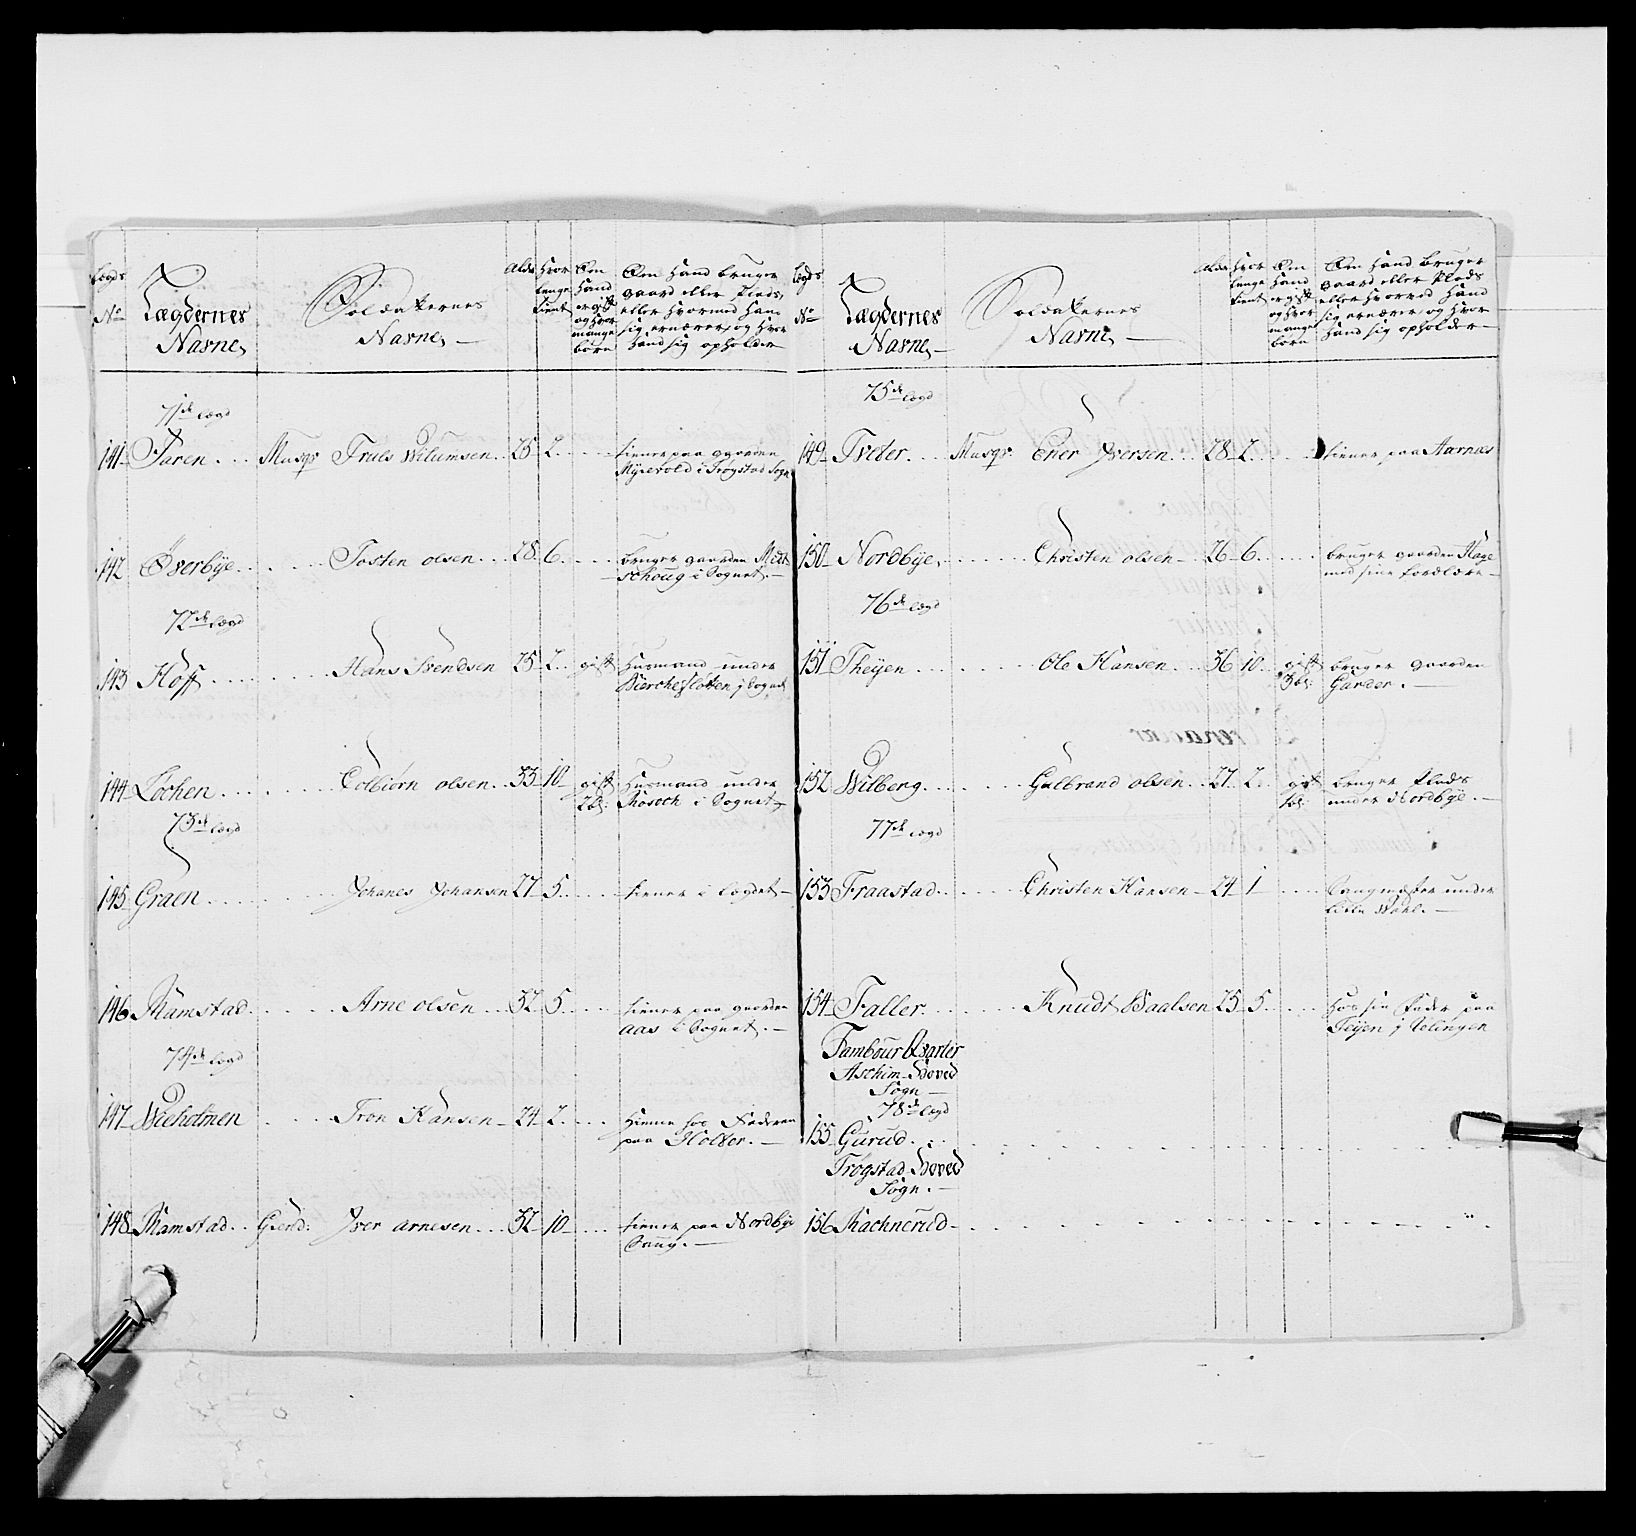 Lægds No
Lægdernes Navne,
Soldaternes Navne, —
Alder
Hvor lenge tient
Om Hand er gift og Hvor mange børn
Om Hand bruger gaard eller Plads, eller Hvormed Han sig ernærer, og Hvor Hand sig opholder
71de lægd
141 Taren . . . Musqr Truls Wilumsen . 25 - 2 . . . . tiener paa gaarden
Myrvold i Trøgstad Sogn
142 Øverbÿe . . . . . Tosten olsen . . . 28 - 6 . . . . bruger gaarden
schoug i Sognet. —
72de lægd
143 Hoff . . . . . Hans Svendsen 25 - 2 . . gift Husmand under
i Sognet
144 Løchen . . . . . Colbiørn olsen . . 33 - 10 - gift Husmand under
2 b: i Sognet
73de lægd
145 Graen . . . . . Johanes Johansen 27 - 5 . . . . tiener i lægdet —
146 Ramstad . . . . Arne olsen . . . 32 - 5 . . . . tiener paa gaarden
aas i Sognet. —
74de lægd
147 Wieholmen . . . . Tron Hansen - 24 - 2 . . . . Hiemme hos Faderen
paa Holter. —
148 Ramstad . . Giend: Jver arnesen . . . 32 - 10 - . . . tiener paa Nordbÿe
Lægds No
Lægdernes Navne, —
Soldaternes Navne, —
Alder
Hvor lenge tient
Om Hand er gift og Hvor mange børn
Om Hand bruger gaard eller Plads eller Hvorved Hand sig ernærer, og Hvor Hand sig opholder —
75de lægd
149 Tveter . . . Musqr. Ener Jversen . . . 28 - 2 . . . . tiener paa Aarnæs
150 Nordbÿe, . . . . . Christen olsen - 26 - 6 . . . . bruger gaarden Hage
med sine forældre —
76de lægd
151 Theÿen . . . . . Ole Hansen . . . 36 - 10 . . gift bruger gaarden
3 b: Garder. —
152 Wilberg . . . . . Gulbrand olsen . . 27 - 2 . . gift bruger Plads
1 b: under Nordbÿe. —
77de lægd
153 Fraastad . . . . . Christen Hansen - 24 - 1 . . . . under
lille
154 Faller . . . . . Knudt Paalsen 25 - 5 . . . . Hos sin Fader paa
Teÿen i
Tambour Qvarter
Aschim Hoved
Sogn —
78de lægd
155 Gurud . . .
Trøgstad Hoved
Sogn. —
156 Rachnerud —